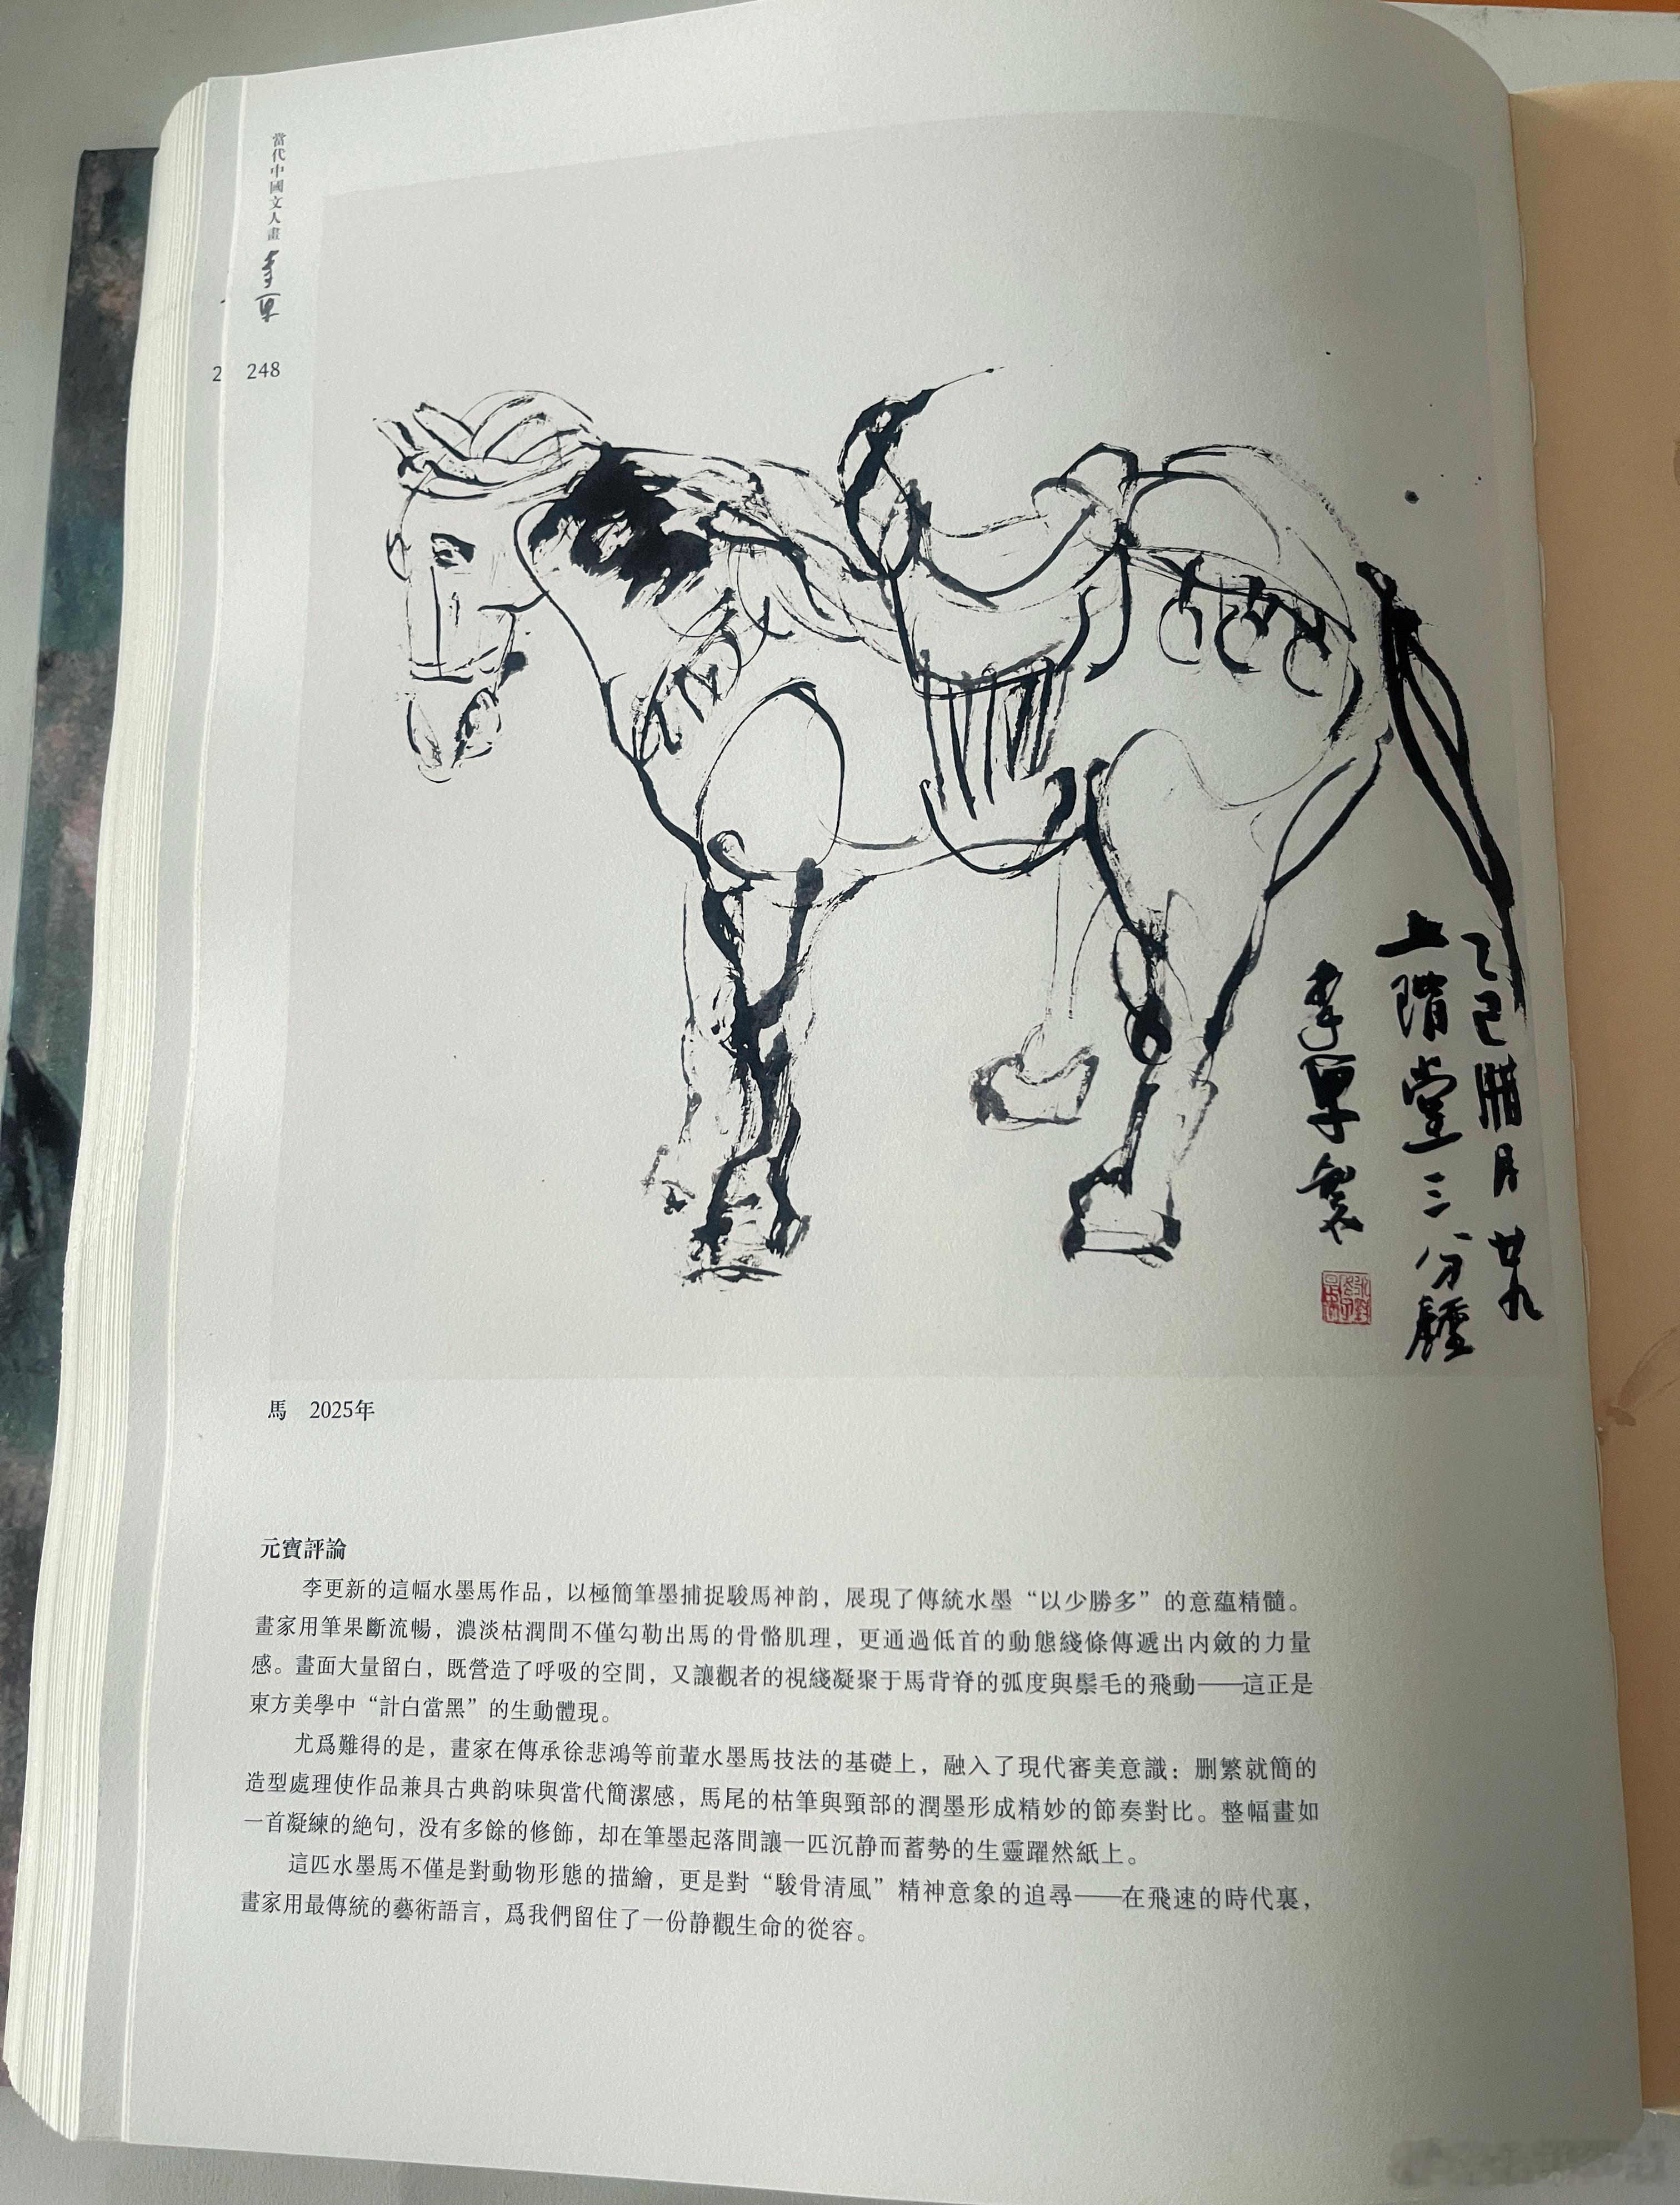 當代中國文人畫
248
乙巳腊月廿九
上階堂三分鐘
馬 2025年
元寶評論
李更新的這幅水墨馬作品，以極簡筆墨捕捉駿馬神韵，展現了傳統水墨“以少勝多”的意蘊精髓。
畫家用筆果斷流暢，濃淡枯潤間不僅勾勒出馬的骨骼肌理，更通過低首的動態綫條傳遞出内斂的力量
感。畫面大量留白，既營造了呼吸的空間，又讓觀者的視綫凝聚于馬背脊的弧度與鬃毛的飛動——這正是
東方美學中“計白當黑”的生動體現。
尤爲難得的是，畫家在傳承徐悲鴻等前輩水墨馬技法的基礎上，融入了現代審美意識：删繁就簡的
造型處理使作品兼具古典韵味與當代簡潔感，馬尾的枯筆與頸部的潤墨形成精妙的節奏對比。整幅畫如
一首凝練的絶句，没有多餘的修飾，却在筆墨起落間讓一匹沉静而蓄勢的生靈躍然紙上。
這匹水墨馬不僅是對動物形態的描繪，更是對“駿骨清風”精神意象的追尋——在飛速的時代裏，
畫家用最傳統的藝術語言，爲我們留住了一份静觀生命的從容。